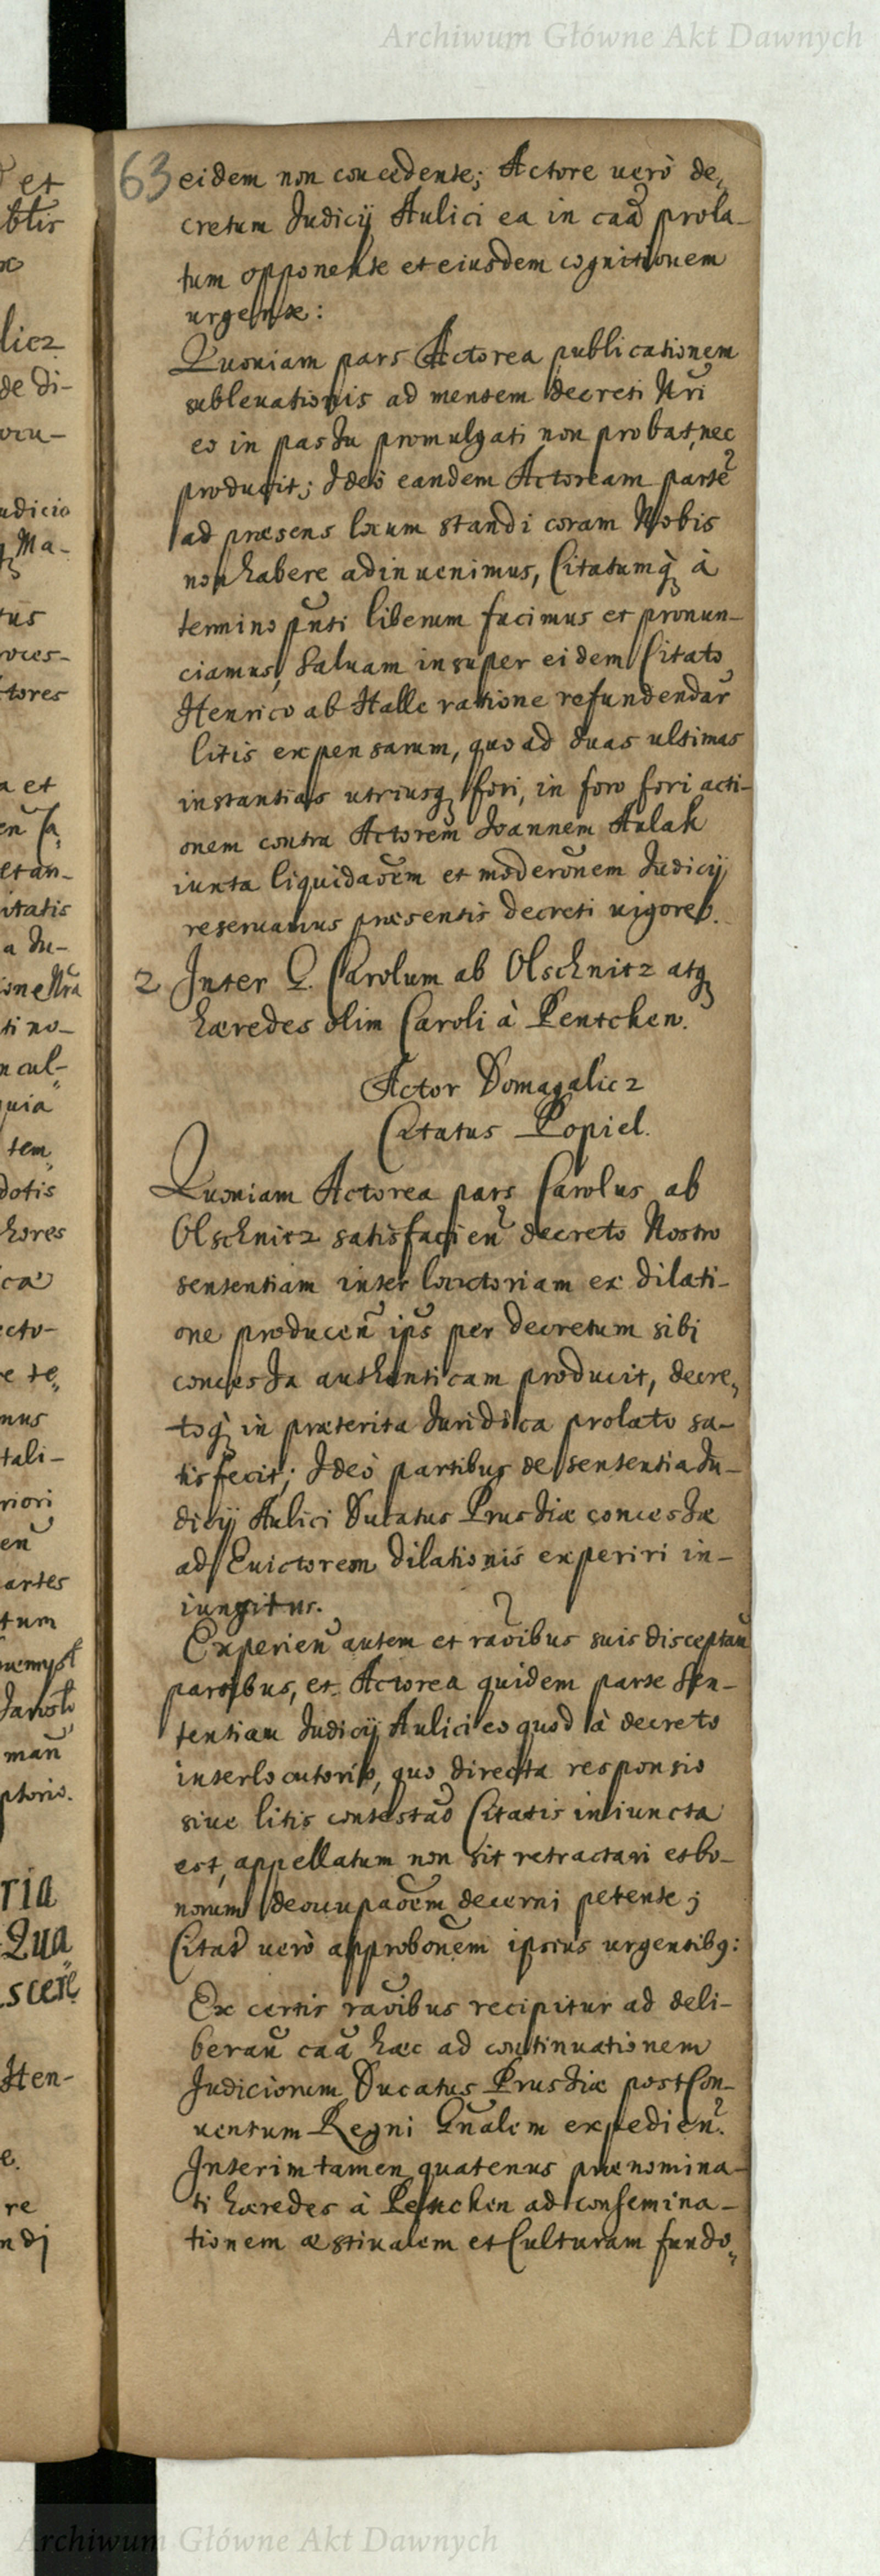 Archiwum Główne Akt Dawnych
63 eidem non concedente; Actore verò de„
cretum Judicij Aulici ea in caã prola-
tum opponente et eiusdem cognitionem
urgente:
Quoniam pars Actorea publicationem
sublevationis ad mentem decreti Nri
eo in passu promulgati non probat, nec
producit; Ideò eandem Actoream parte
ad præsens locum standi coram Nobis
non habere adinvenimus, Citatumq à
termino pnti liberum facimus et pronun-
ciamus, Salvam insuper eidem Citato
Henrico ab Halle ratione refundendar
litis expensarum, quo ad duas ultimas
instantias utriusq fori, in foro fori acti-
onem contra Actorem Joannem Aulak
iuxta liquidaõem et moderõnem Judicij
reservamus præsentis decreti vigore.
2 Inter G. Carolum ab Olschnitz atq
hæredes olim Caroli à Pentchen.
Actor Domagalicz
Citatus Popiel.
Quoniam Actorea pars Carolus ab
Olschnitz satisfacien decreto Nostro
sententiam interlocutoriam ex dilati-
one producen ips per decretum sibi
concessa authenticam producit, decre„
toq in præterita Juridica prolato sa-
tisfecit; Ideò partibus de sententia Ju-
dicij Aulici Ducatus Prussiæ concessæ
ad Evictorem dilationis experiri in-
iungitur.
Experien autem et raõibus suis disceptan
partibus, et Actorea quidem parte Sen-
tentiam Judicij Aulici eo quod à decreto
interlocutorio, quo directa responsio
sive litis contestaõ Citatis iniuncta
est, appellatum non sit retractari et bo-
norum deoccupaõem decerni petente;
Citat verò approbõnem ipsius urgentibq:
Ex certis raõibus recipitur ad deli-
beran caã hæc ad continuationem
Judiciorum Ducatus Prussiæ post Con-
ventum Regni Gnalem expedien.
Interim tamen quatenus prænomina-
ti hæredes à Pentchen ad consemina-
tionem æstivalem et Culturam fundo„
Archiwum Główne Akt Dawnych